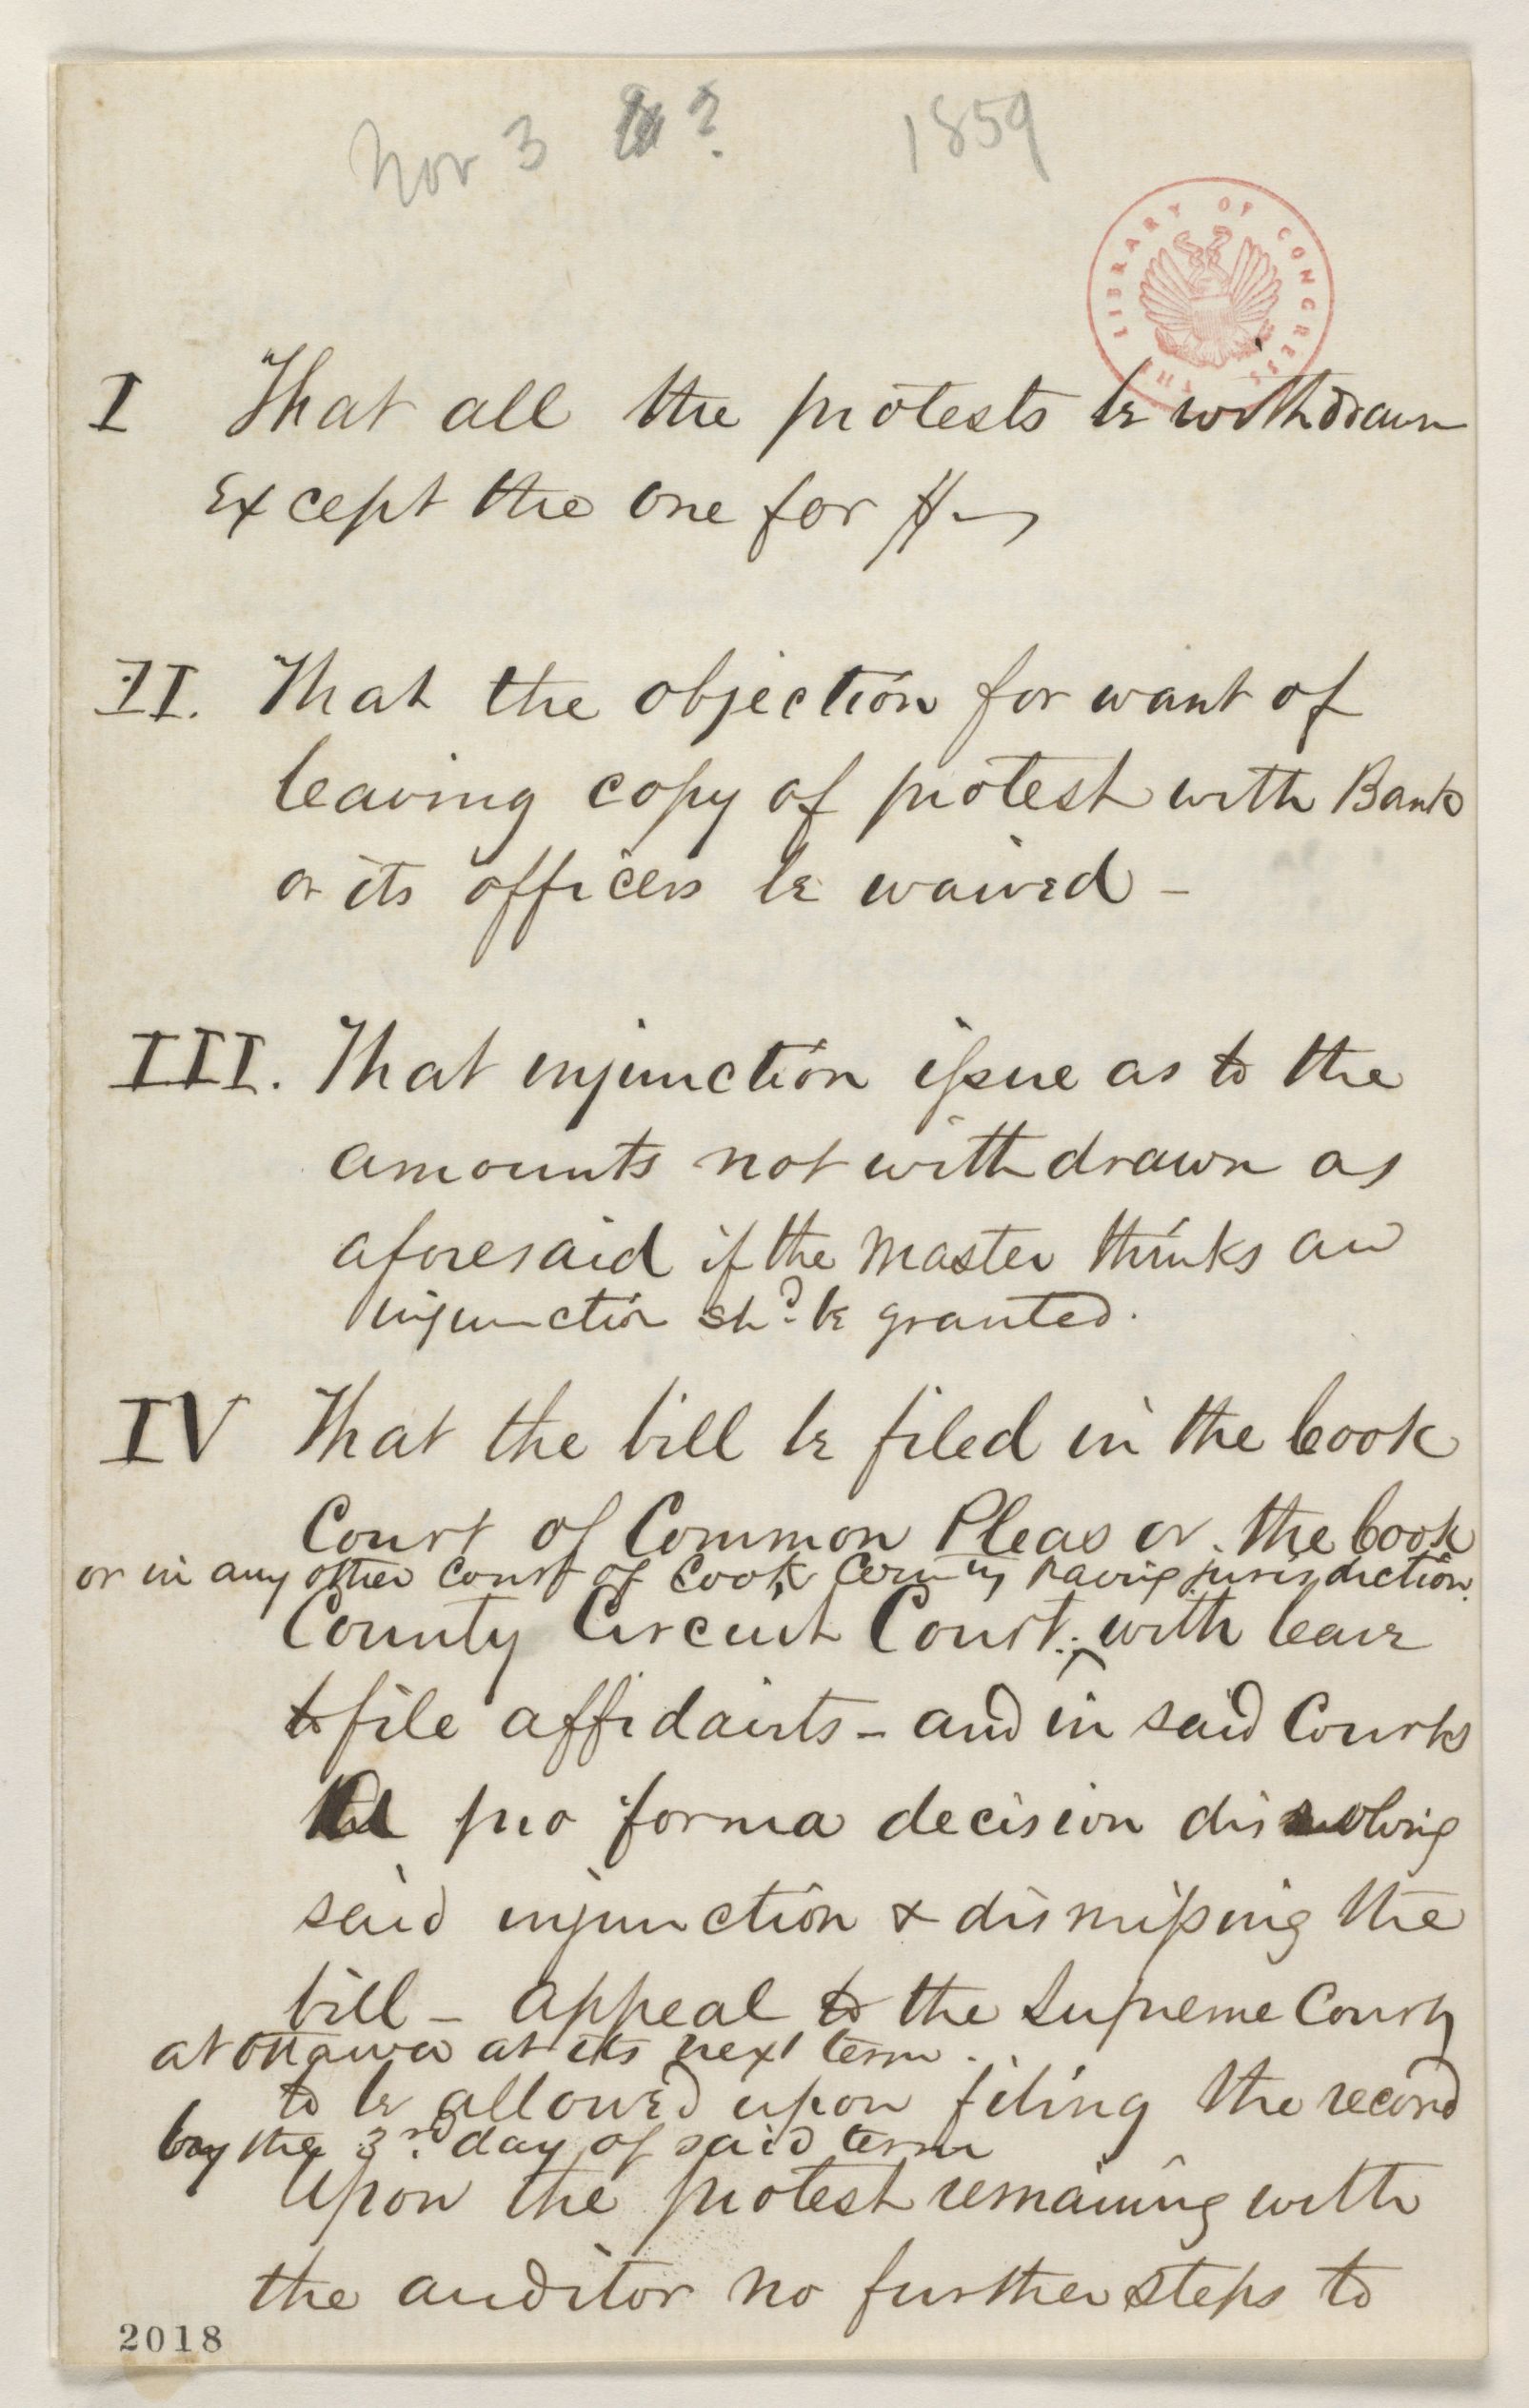 Nov 3 ? 1859
THE LIBRARY OF CONGRESS
I That all the protests be withdrawn
Except the one for $
II. That the objection for want of
leaving copy of protest with Bank
or its officers be waived -
III. That injunction issue as to the
amounts not withdrawn as
aforesaid if the Master thinks an
injunction shd. be granted.
IV That the bill be filed in the Cook
Court of Common Pleas or the Cook
or in any other Court of Cook County having jurisdiction.
County Circuit Court. with leave
to file affidavits - and in said Courts
pro forma decision dissolving
said injunction & dismissing the
bill - appeal to the Supreme Court
at Ottawa at its next term.
to be allowed upon filing the record
by the 3rd day of said term
Upon the protest remaining with
the auditor no further steps to
2018